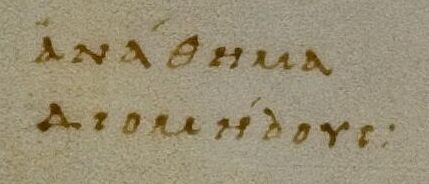 ἀνάθημα
Διομήδους: